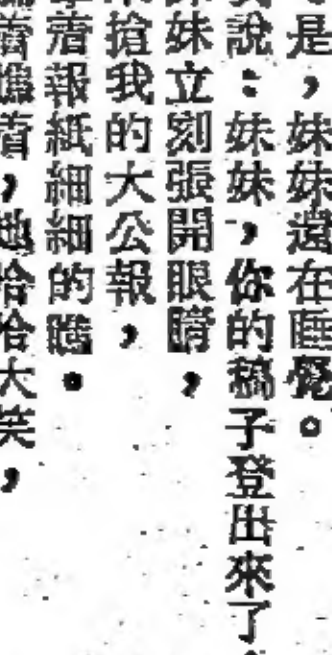 是，妹妹還在睡覺。
說：妹妹，你的稿子登出來了
妹立刻張開眼睛，
搶我的大公報，
着報紙細細的瞧。
着瞧着，她哈哈大笑，